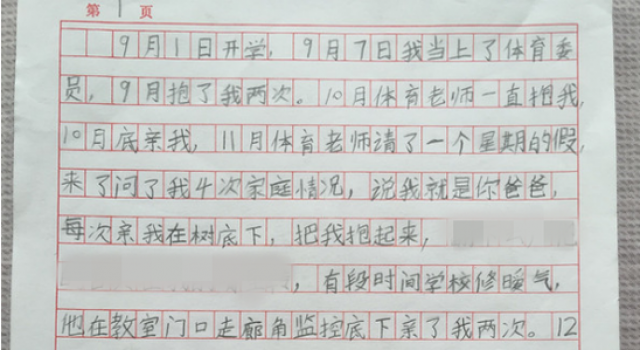 第 1 页
9月1日开学，9月7日我当上了体育委
员，9月抱了我两次。10月体育老师一直抱我，
10月底亲我，11月体育老师请了一个星期的假，
来了问了我4次家庭情况，说我就是你爸爸，
每次亲我在树底下，把我抱起来，
，有段时间学校修暖气，
他在教室门口走廊角监控底下亲了我两次。12